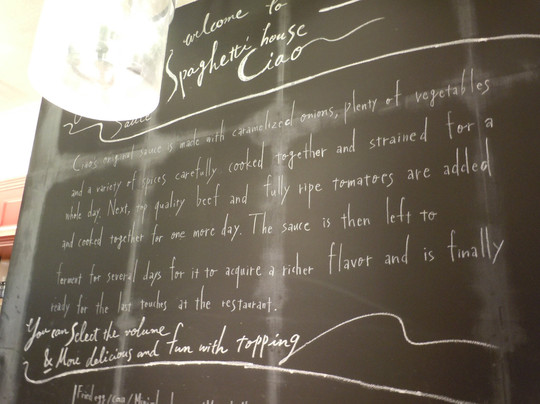 welcome to
Spaghetti house
Ciao
Sauce
Ciao's original sauce is made with caramelized onions, plenty of vegetables
and a variety of spices carefully cooked together and strained for a
whole day. Next, top quality beef and fully ripe tomatoes are added
and cooked together for one more day. The sauce is then left to
ferment for several days for it to acquire a richer flavor and is finally
ready for the last touches at the restaurant.
You can Select the volume
& More delicious and fun with topping
Fried egg/